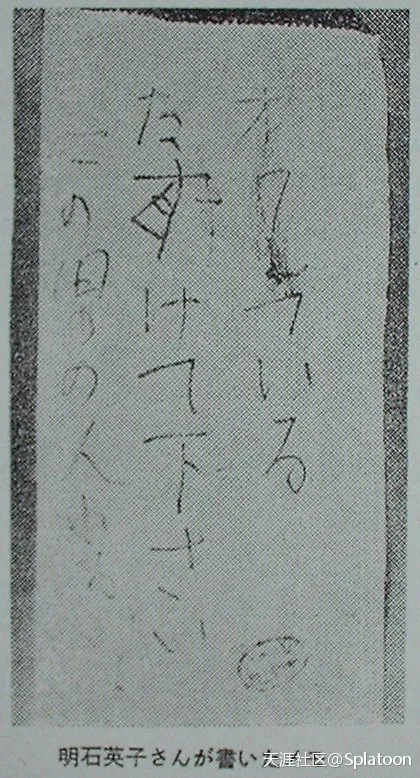 オワレている
たすけて下さい
この男の人わるい
明石英子さんが書いた
天涯社区@Splatoon